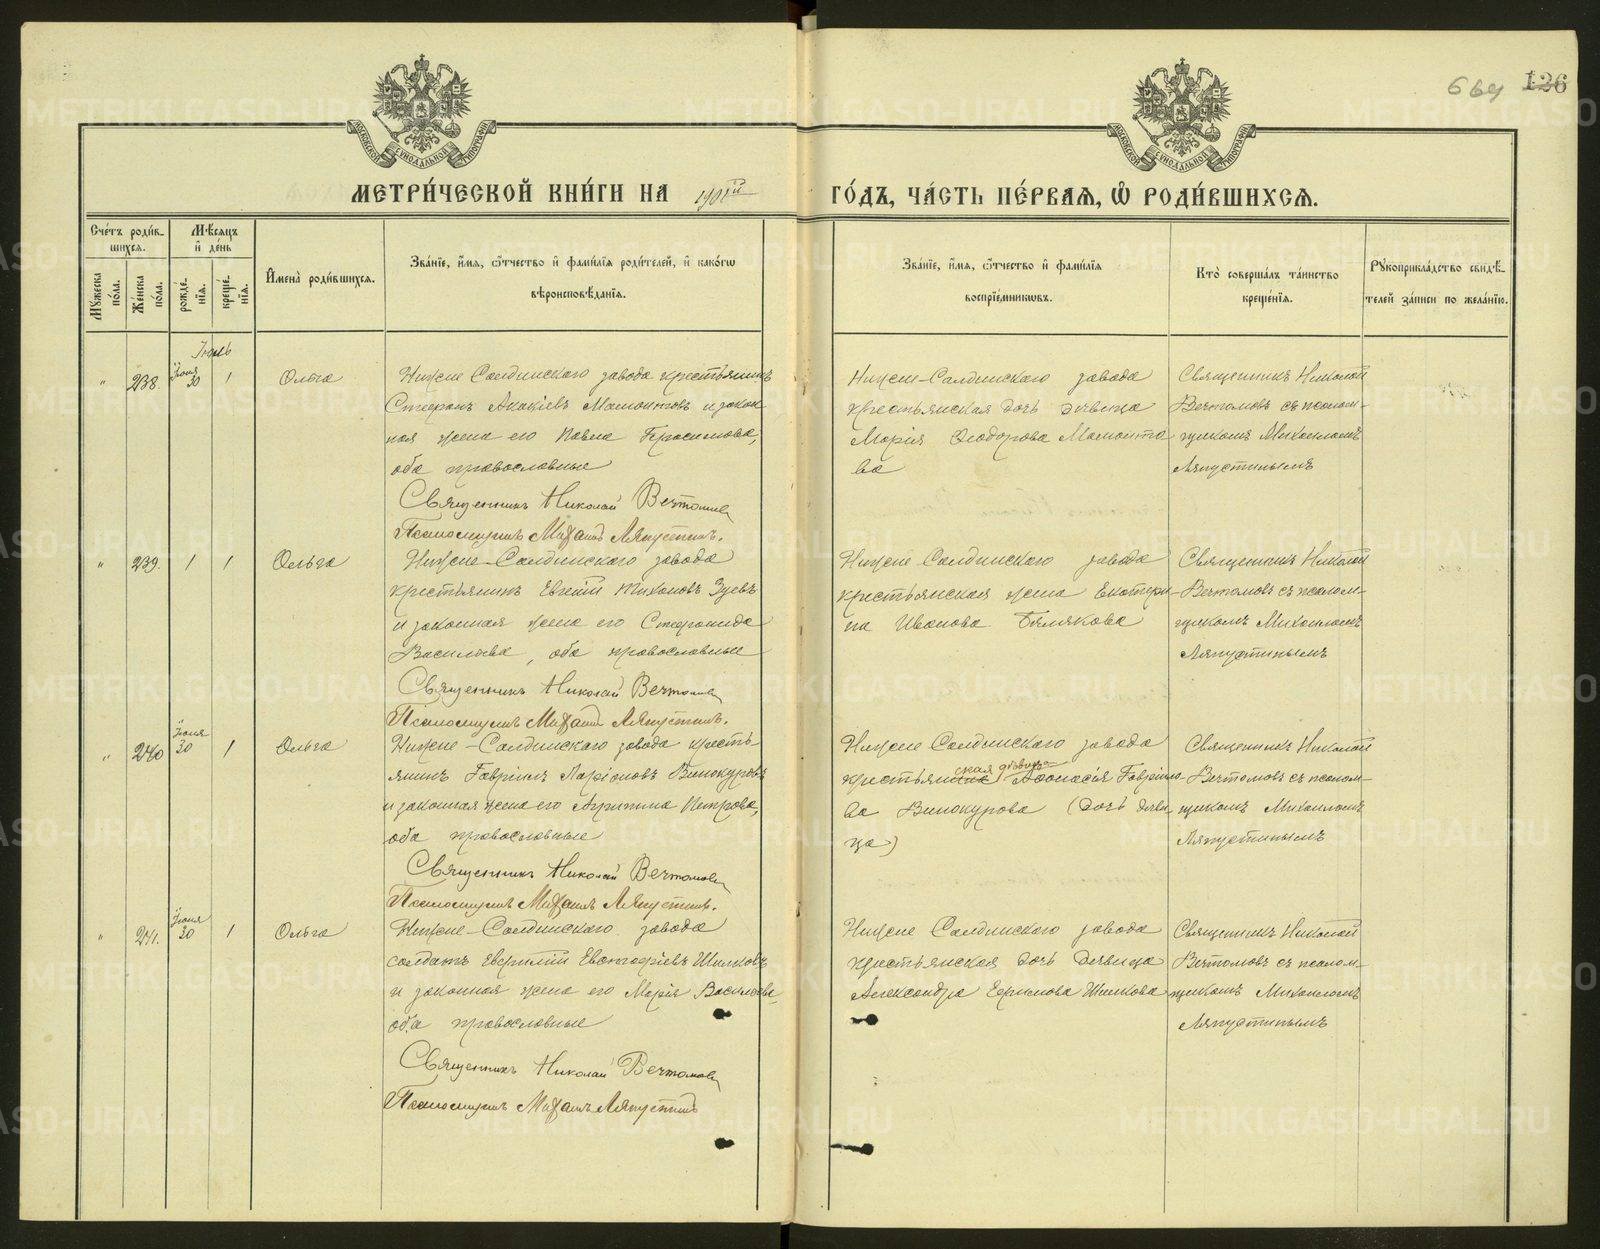 664 126
МОСКОВСКОЙ СѴНОДАЛЬНОЙ ТИПОГРАФІИ
МОСКОВСКОЙ СѴНОДАЛЬНОЙ ТИПОГРАФІИ
МЕТРИ́ЧЕСКОЙ КНИ́ГИ НА
ГО́ДЪ, ЧА́СТЬ ПЕ́РВАѦ, Ѡ҆ РОДИ́ВШИХСѦ.
Сче́тъ роди́в-
шихсѧ.
Мѣ́сѧцъ
и҆ де́нь
Мꙋ́жеска
по́ла.
Же́нска
по́ла.
рожде́-
нїѧ.
креще́-
нїѧ.
И҆мена̀ роди́вшихсѧ.
Зва́нїе, и҆́мѧ, ѻ҆́тчество и҆ фами́лїѧ роди́телей, и҆ како́гѡ
вѣроисповѣ́данїѧ.
Зва́нїе, и҆́мѧ, ѻ҆́тчество и҆ фами́лїѧ
воспрїе́мникѡвъ.
Кто̀ соверша́лъ та́инство
креще́нїѧ.
Рꙋкоприкла́дство свидѣ́-
телей за́писи по жела́нїю.
Іюль
" 238. Іюня 30 1 Ольга
Нижне Салдинскаго завода крестьянинъ
Стефанъ Акакіевъ Мамонтовъ и закон
ная жена его Павла Герасимова,
оба православные
Священникъ Николай Вечтомовъ
Псаломщикъ Михаилъ Ляпустинъ.
Нижне-Салдинскаго завода
крестьянская дочь девица
Марія Ѳеодорова Мамонто
ва
Священникъ Николай
Вечтомовъ съ псалом-
щикомъ Михаиломъ
Ляпустинымъ
" 239. 1 1 Ольга
Нижне-Салдинскаго завода
крестьянинъ Евгеній Тихоновъ Зуевъ
и законная жена его Стефанида
Васильева, оба православные
Священникъ Николай Вечтомовъ
Псаломщикъ Михаилъ Ляпустинъ.
Нижне Салдинскаго завода
крестьянская жена Екатери-
на Иванова
Священникъ Николай
Вечтомовъ съ псалом-
щикомъ Михаиломъ
Ляпустинымъ
" 240 Іюня 30 1 Ольга
Нижне-Салдинскаго завода кресть-
янинъ Гавріилъ Ларіоновъ Винокуровъ
и законная жена его Агрипина Петрова,
оба православные
Священникъ Николай Вечтомовъ
Псаломщикъ Михаилъ Ляпустинъ.
Нижне Салдинскаго завода
ская девица
крестьянник Аѳонасія Гаврило
ва Винокурова (дочь деви
ца)
Священникъ Николай
Вечтомовъ съ псалом-
щикомъ Михаиломъ
Ляпустинымъ
" 241. Іюня 30 1 Ольга
Нижне-Салдинскаго завода
солдатъ Евстафіевъ
и законная жена его Марія Васильева
оба православные
Священникъ Николай Вечтомовъ
Псаломщикъ Михаилъ Ляпустинъ
Нижне Салдинскаго завода
крестьянская дочь девица
Александра
Священникъ Николай
Вечтомовъ съ псалом-
щикомъ Михаиломъ
Ляпустинымъ
METRIKI.GASO-URAL.RU